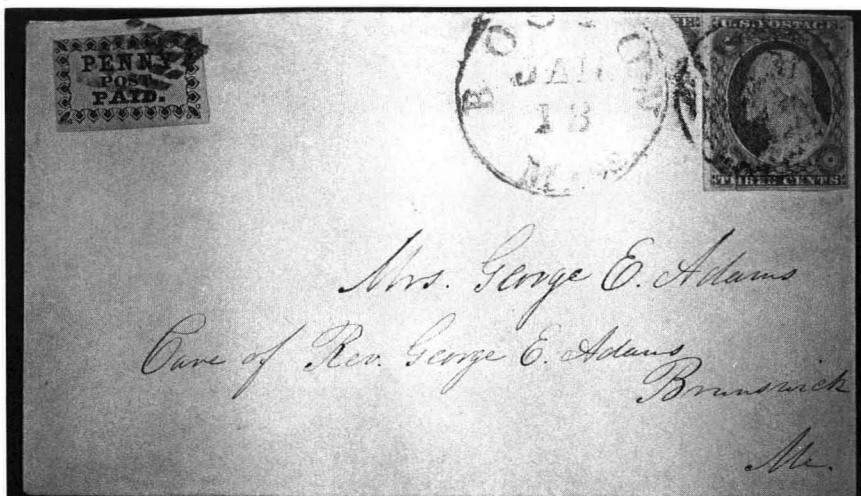 PENNY
POST
PAID.
BOSTON
JAN
13
MASS
U.S. POSTAGE
THREE CENTS
Mrs. George E. Adams
Care of Rev. George E. Adams
Brunswick
Me.